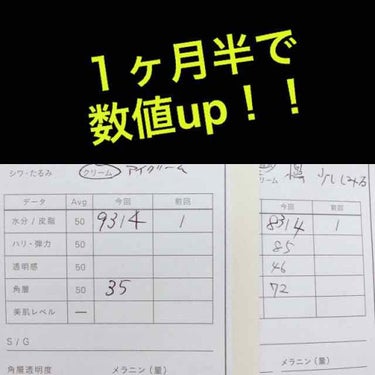 1ヶ月半で
数値up！！
シワ・たるみ クリーム アイクリーム
データ Avg 今回 前回
水分/皮脂 50 93 14 1
ハリ・弾力 50
透明感 50
角層 50 35
美肌レベル ー
S/G
角層透明度 メラニン(量)
リーム
今回 前回
83 14 1
85
46
72
メラニン(量)